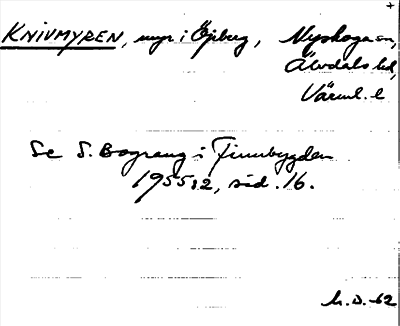 +
KNIVMYREN, myr i Öjberg, Nyskoga sn,
Älvdals hd,
Värml. l
Se S. Bograng i Finnbygden
1955:2, sid. 16.
M. D. -62